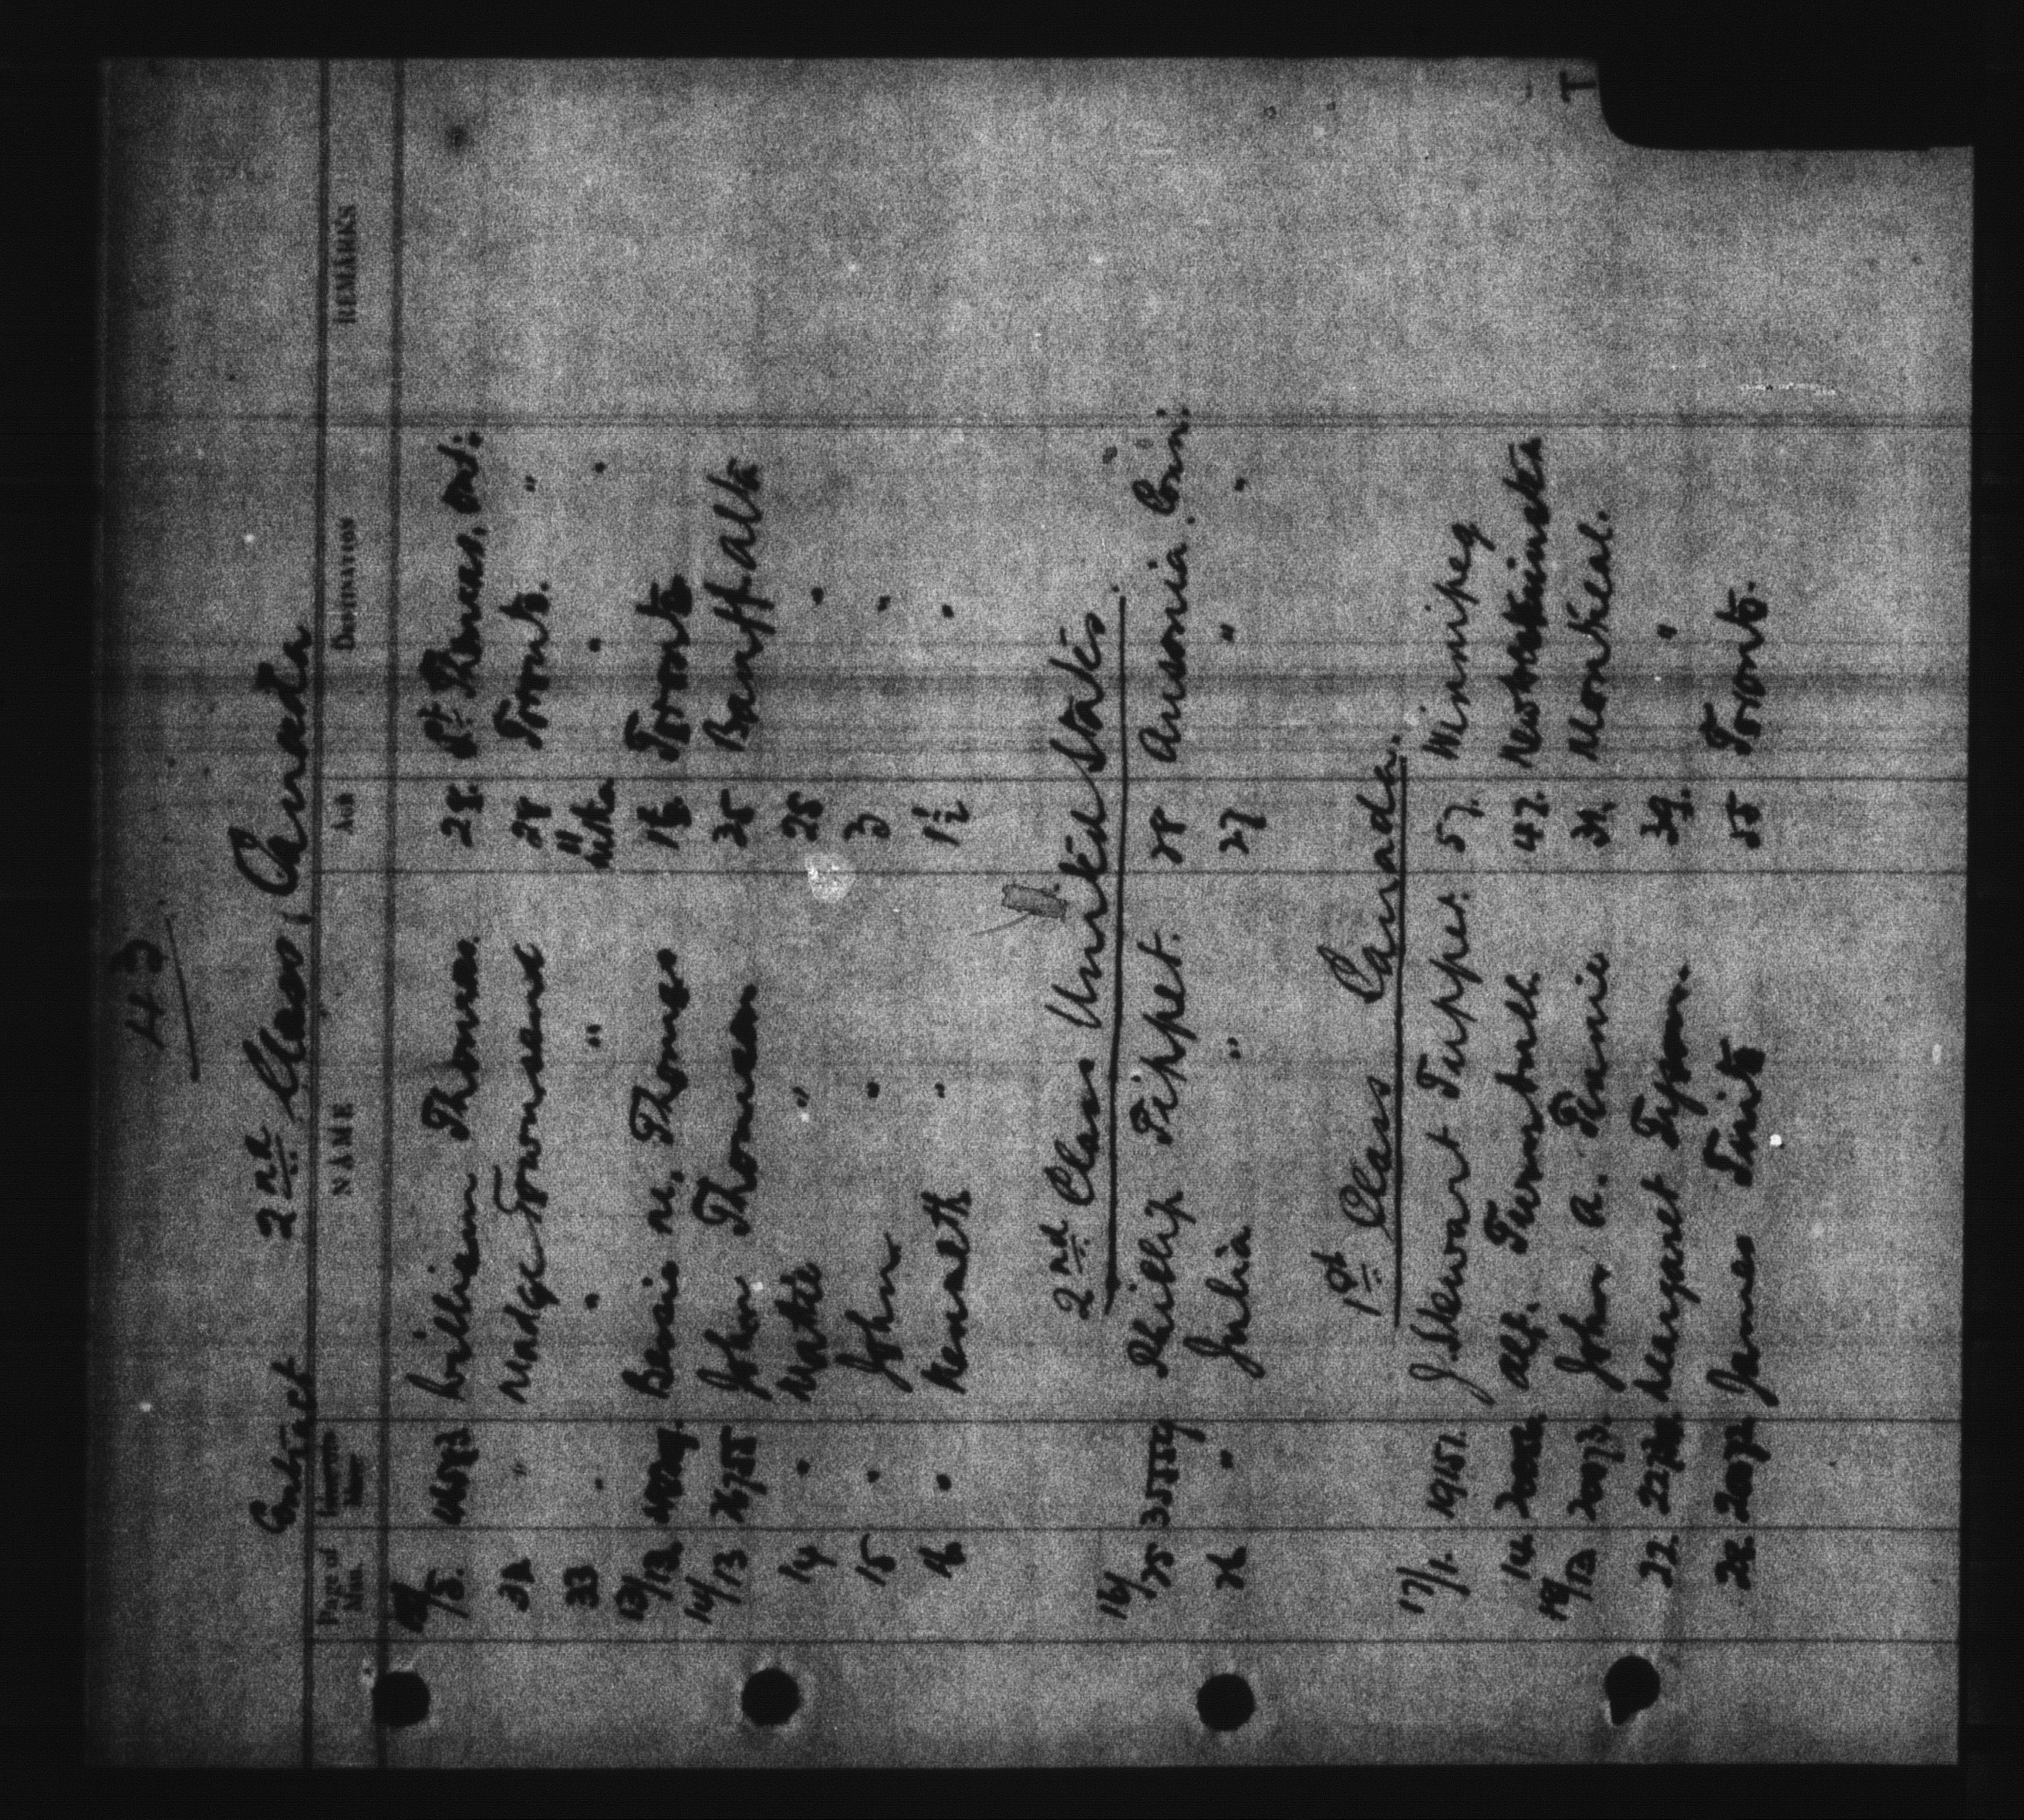 43
Contract 2nd Class, Canada
Page of Man. NAME AGE DESTINATION REMARKS
/15. William Thomas. 28. St. Thomas, Ont.
32 " Madge Townsend 28 Toronto. "
33 " " " 11 mths " "
13/12 Bessie M. Thomas Toronto
14/13 John Thomson 35 Banff Alta
14 " Matie " 25 "
15 " John " 3 "
16 " Kenneth " 1½ "
2nd Class United States.
14/25 35559 Phillip Tippet. 28 Ansonia. Conn.
26 " Julia " 27 " "
1st Class Canada.
17/1. 19151. J. Stewart Tupper. 57. Winnipeg
14 Alf. Turnbull 47. New Westminster
19/12 20073. John A. 31. Montreal.
22 Margaret Tyson. 39. "
28. 20072 James 55 Toronto.
T